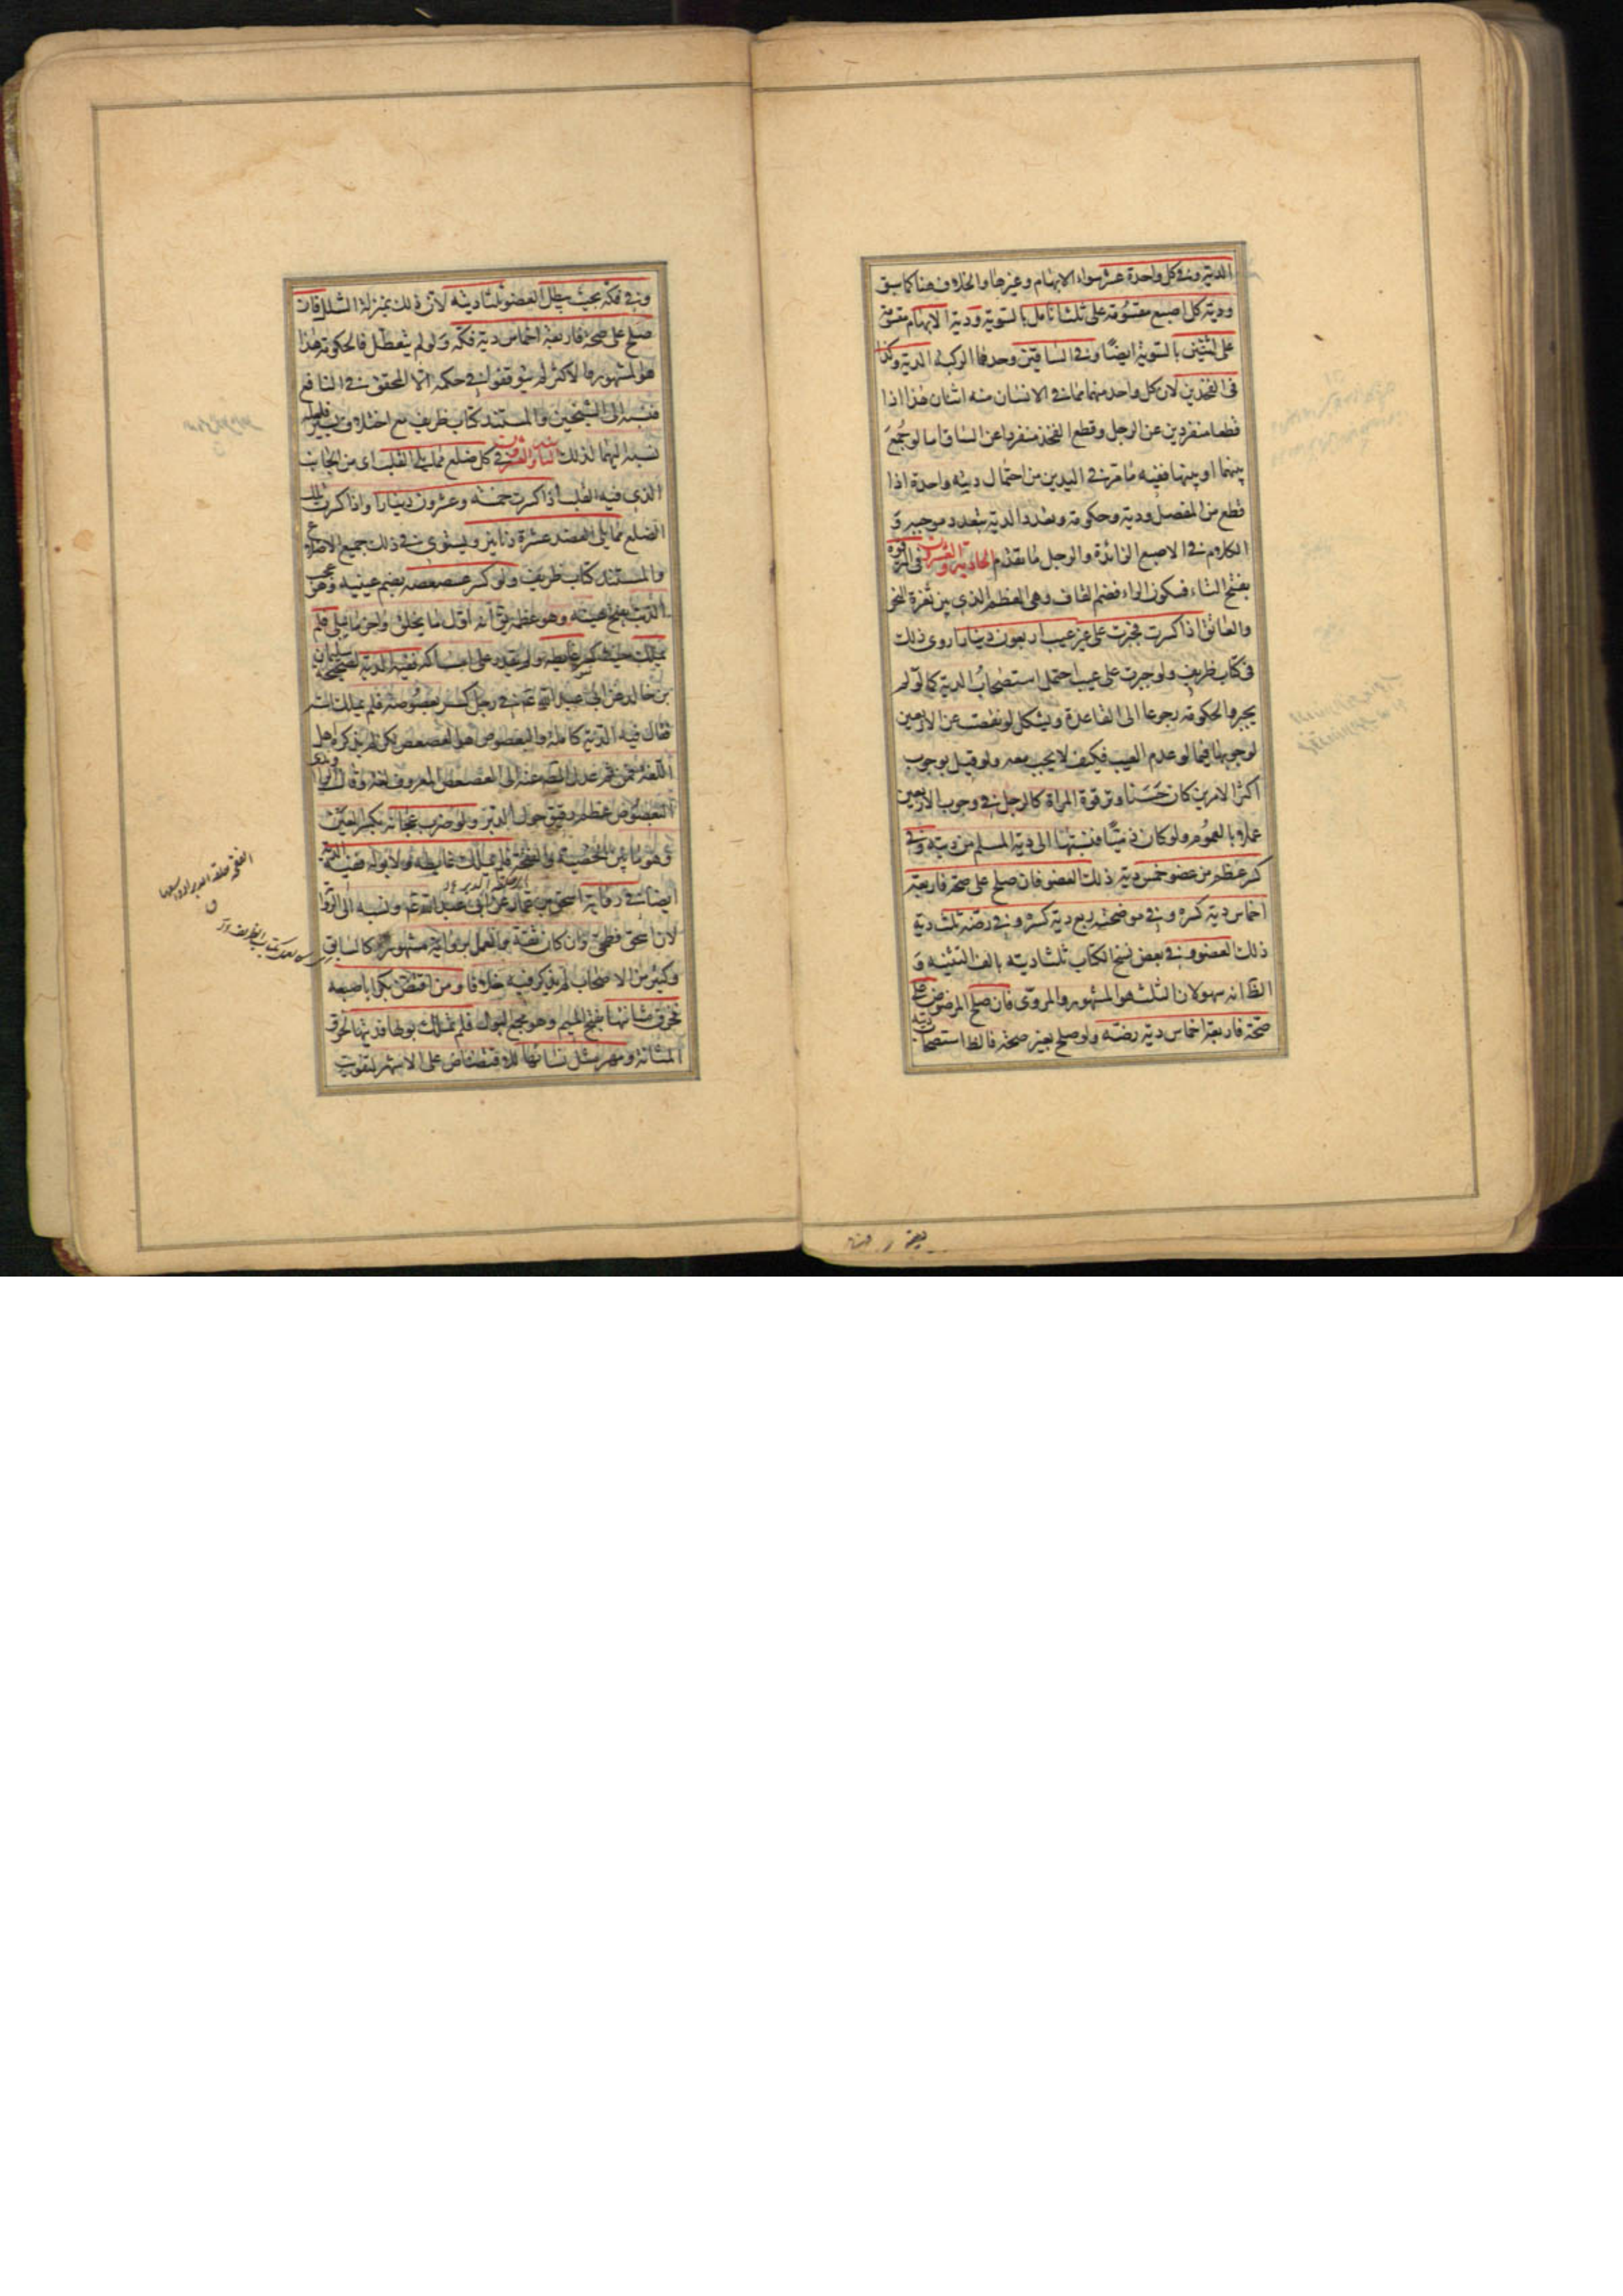 الدية وفي كل واحدة عشر سواء الابهام وغيرها والخلاف هنا كما سبق
ودية كل اصبع مقسومة على ثلث انامل بالسوية ودية الابهام مقسومة
على اثنتين بالسوية ايضا وفي الساقين وحدهما الركبة الدية وكذا
في الفخذين لان كل واحد منهما مما في الانسان منه اثنان هذا اذا
قطعا منفردين عن الرجل وقطع الفخذ منفردا عن الساق اما لو جمع
بينهما او بينها ففيه ما مر في اليدين من احتمال دية واحدة اذا
قطع من المفصل ودية وحكومة وتعدد الدية بتعدد موجبه و
الكلام في الاصبع الزائدة والرجل ما تقدم الحادية والعشرون في الترقوة
بفتح التاء فسكون الراء فضم القاف وهي العظم الذي بين ثغرة النحر
والعاتق اذا كسرت فجبرت على غير عيب اربعون دينارا روى ذلك
في كتاب ظريف ولو جبرت على عيب احتمل استصحاب الدية كما لو لم
يجبر والحكومة رجوعا الى القاعدة ويشكل لو نقصت عن الاربعين
لوجوبها فيما لو عدم العيب فكيف لا يجب معه ولو قيل بوجوب
اكثر الامرين كان حسنا وترقوة المراة كالرجل في وجوب الاربعين
عملا بالعموم ولو كان ذميا فنسبتها الى دية المسلم من ديته وفي
كسر عظم من عضو خمس دية ذلك العضو فان صلح على صحة فاربعة
اخماس دية كسره وفي موضحته ربع دية كسره وفي رضه ثلث دية
ذلك العضو وفي بعض نسخ الكتاب ثلثا ديته بالف التثنية و
الظ انه سهو لان الثلث هو المشهور والمروى فان صلح المرضوض على
صحة فاربعة اخماس دية رضه ولو صلح بغير صحة فالظ استصحاب ديته
وفي فكه بحيث يبطل العضو ثلثا ديته لان ذلك بمنزلة الشلل فان
صلح على صحة فاربعة اخماس دية فكه ولو لم يتعطل فالحكومة هذا
هو المشهور والاكثر لم يتوقفوا في حكمه الا المحقق في النافع
فنسبه الى الشيخين والمستند كتاب ظريف مع اختلاف يسير فلعله
نسبه اليهما لذلك الثانية والعشرون في كل ضلع مما يلي القلب اى من الجانب
الذي فيه القلب اذا كسرت خمسة وعشرون دينارا واذا كسرت تلك
الضلع مما يلي العضد عشرة دنانير ويستوى في ذلك جميع الاضلاع
والمستند كتاب ظريف ولو كسر عصعصه بضم عينيه وهو عجب
الذنب بفتح عينه وهو عظمه يق انه اول ما يخلق واخر ما يبلى فلم
يملك حينئذ غايطه ولم يقدر على امساكه ففيه الدية لصحيحة سليمان
بن خالد عن ابى عبد الله ع في رجل كسر بعصوصه فلم يملك استه
فقال فيه الدية كاملة والبعصوص هو العصعص لكن لم يذكره اهل
اللغة فمن ثم عدل المصنف عنه الى العصعص المعروف لغة وقال الراوندى
البعصوص عظم دقيق حول الدبر ولو ضرب عجانه بكسر العين
وهو ما بين الخصية والفقحة فلم يملك غايطه ولا بوله ففيه الدية
ايضا في رواية اسحق بن عمار عن ابى عبد الله ع ونسبه الى الرواية
لان اسحق فطحى وان كان ثقة والعمل بروايته مشهور كالسابق
وكثير من الاصحاب لم يذكر فيه خلافا ومن افتض بكرا باصبعه
فخرق مثانتها بفتح الميم وهو مجمع البول فلم تملك بولها فديتها لخرق
المثانة ومهر مثل نسائها للافتضاض على الاشهر لتفويت